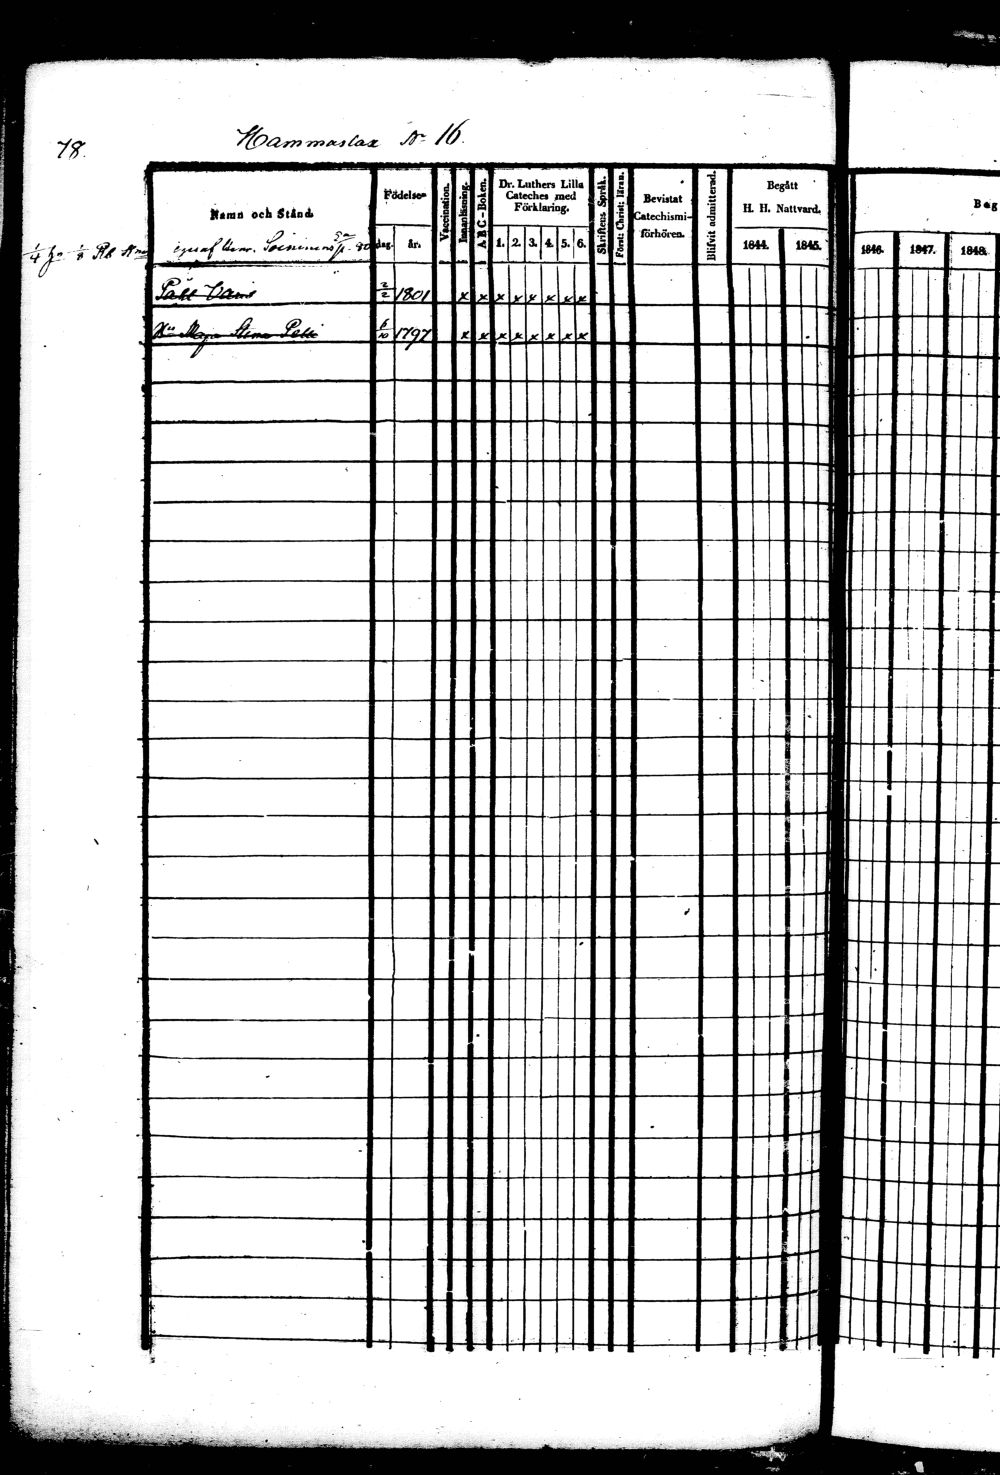 78.
Hammaslax No 16.
Namn och Stånd.
Födelse-
dag. år.
Vaccination.
Innanläsning.
A B C-Boken.
Dr. Luthers Lilla
Cateches med
Förklaring.
1. 2. 3. 4. 5. 6.
Skriftens Språk.
Först: Christ: läran.
Bevistat
Catechismi-
förhören.
Blifvit admitterad.
Begått
H. H. Nattvard.
1844. 1845.
Beg
1846. 1847. 1848.
1/4
2/2 1801 x x x x x x x x
Maja Stina 6/10 1797 x x x x x x x x